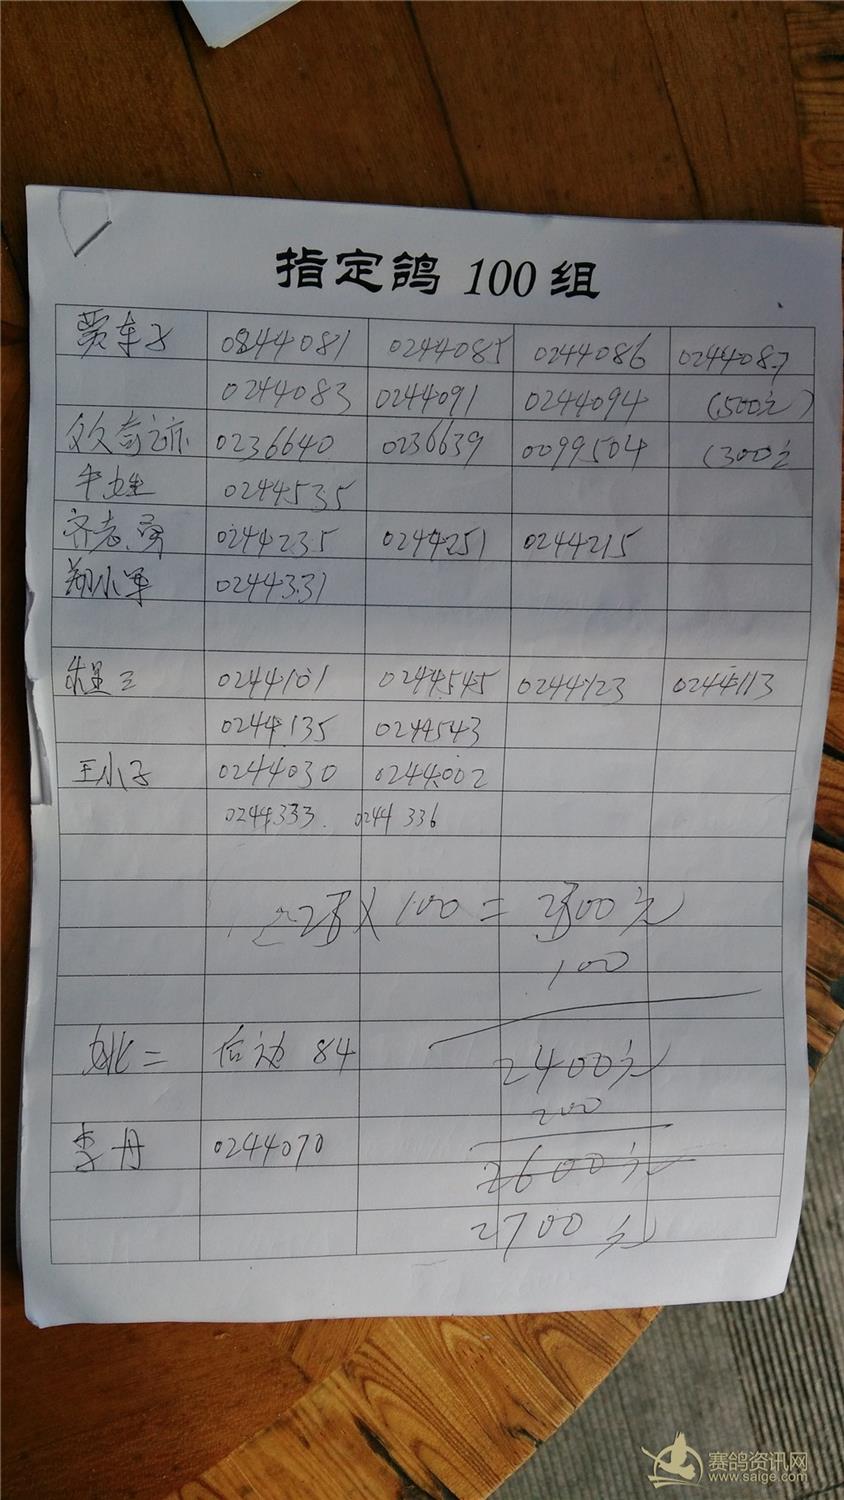 指定鸽 100 组
贾车子 0844081 0244085 0244086 0244087
0244083 0244091 0244094 (500元)
奇迹 0236640 0236639 0099504 (300元
0244535
齐志勇 0244235 0244251 0244215
翔小军 0244331
程三 0244101 0244545 0244123 0244113
0244135 0244543
王小子 0244030 0244002
0244333. 0244 336
X 100 = 元
100
姚二 后边 84
2400元
200
李丹 0244070
2600元
2700元
赛鸽资讯网
www.saige.com